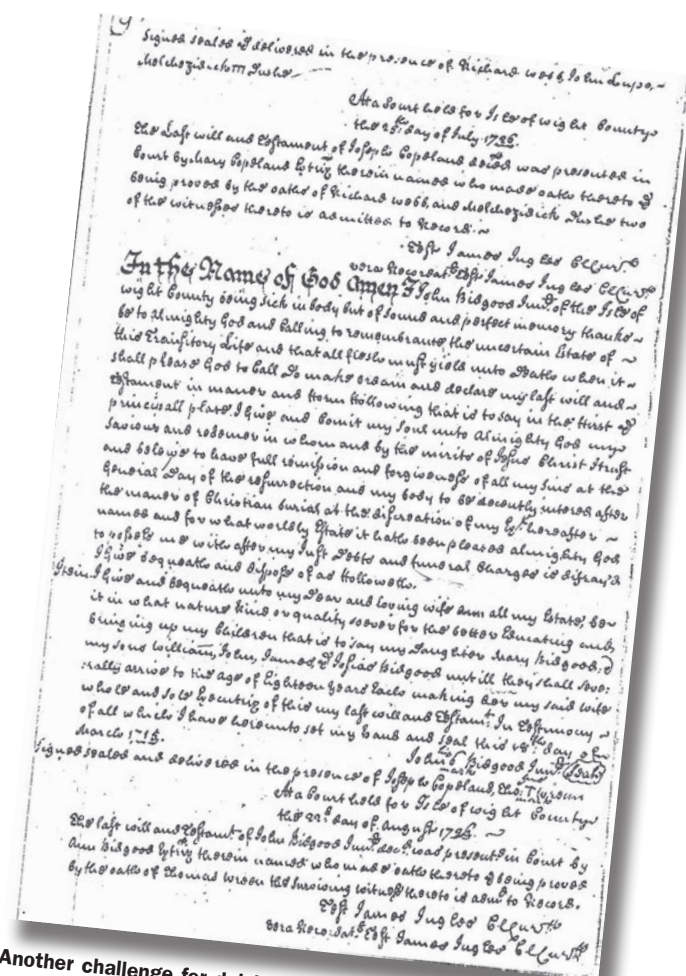 Signed sealed & delivered in the presence of Richard Webb, John Lupo,
Melchezidick Dushe
At a Court held for Isle of wight County
the 25th day of July 1726.
The Last will and Testament of Joseph Copeland deced was presented in
Court by Mary Copeland Extrix therein named who made oath thereto &
being proved by the oaths of Richard Webb, and Melchezidick Dushe two
of the witnesses thereto is admitted to Record.
Test James Ingles Cl Cur
vera Recordat Test James Ingles Cl Cur
In the Name of God Amen I John Bidgood Junr. of the Isle of
wight County being sick in body but of sound and perfect memory thanks
be to Almighty God and Calling to remembrance the uncertain Estate of
this Transitory Life and that all flesh must yield unto Death when it
shall please God to Call Do make ordain and declare my last will and
Testament in maner and form ffollowing that is to say in the ffirst &
principall place I Give and Comit my Soul unto Almighty God my
Saviour and redemer in whom and by the merits of Jesus Christ I trust
and beleive to have full remission and forgiveness of all my sins at the
General Day of the resurrection and my body to be decently intered after
the maner of Christian burial at the discreation of my hereafter
named and for what worldly Estate it hath been pleased almighty God
to possess me with after my Just Debts and funeral Charges is difray'd
I Give bequeath and dispose of as ffolloweth.
Item. I Give and Bequeath unto my Dear and loving wife ann all my Estate, be
it in what nature kind or quality soever for the better Educating and
bringing up my Children that is to say my Daughter Mary Bidgood, &
my sons William, John, James, & Josias Bidgood untill they shall seve-
rally arrive to the age of Eighteen years Each making her my said wife
whole and sole Executrix of this my last will and Testamt. In Testimony
of all which I have hereunto set my hand and seal this 18th day of
March 1715.
John Bidgood Junr. (Seal)
his mark
Signed sealed and delivered in the presence of Joseph Copeland, Tho: T Wrenn
his mark
At a Court held for Isle of wight County
the 22d day of August 1726.
The last will and Testamt. of John Bidgood Junr. decd. was presented in Court by
Ann Bidgood Extrix therein named who made oath thereto & being proved
by the oaths of Thomas Wrenn the surviving witness thereto is admd to Record.
Test James Ingles Cl Cur
vera Recordat. Test James Ingles Cl Cur
Another challenge for